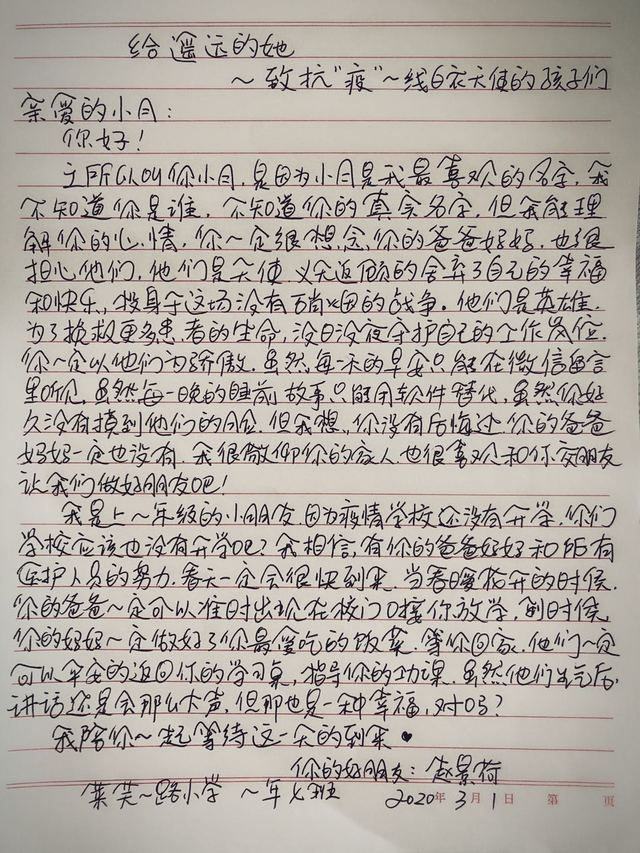 给遥远的她
～致抗"疫"一线白衣天使的孩子们
亲爱的小月:
你好!
之所以叫你小月,是因为小月是我最喜欢的名字,我
不知道你是谁,不知道你的真实名字,但我能理
解你的心情,你一定很想念你的爸爸妈妈,也很
担心他们,他们是天使,义无返顾的舍弃了自己的幸福
和快乐,投身于这场没有硝烟的战争。他们是英雄,
为了挽救更多患者的生命,没日没夜守护自己的工作岗位,
你一定以他们为骄傲。虽然每一天的早安只能在微信留言
里听,虽然每一晚的睡前故事只能用软件替代,虽然你好
久没有摸到他们的脸,但我想,你没有后悔过,你的爸爸
妈妈一定也没有,我很敬仰你的家人,也很喜欢和你交朋友
让我们做好朋友吧!
我是上一年级的小朋友,因为疫情学校还没有开学,你们
学校应该也没有开学吧?我相信,有你的爸爸妈妈和所有
医护人员的努力,春天一定会很快到来,当春暖花开的时候,
你的爸爸一定可以准时出现在校门口接你放学,到时候,
你的妈妈一定做好了你最爱吃的饭菜,等你回家,他们一定
可以平安的返回你的学习桌,指导你的功课,虽然他们生气后,
讲话还是会那么大声,但那也是一种幸福,对吗?
我陪你一起等待这一天的到来
你的好朋友:赵景荷
莱芜一路小学 一年七班 2020年3月1日 第 页